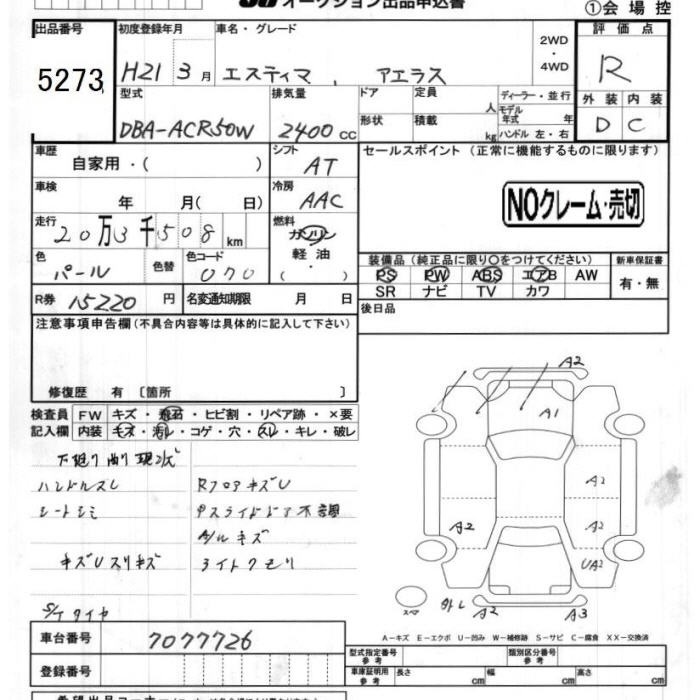 オークション出品申込書
①会場控
出品番号
5273
初度登録年月
H21 3月
車名・グレード
エスティマ アエラス
2WD
・
4WD
評価点
R
外装 内装
D C
型式
DBA-ACR50W
排気量
2400 cc
ドア
形状
定員
人
積載
kg
ディーラー・並行
モデル
年式 年
ハンドル 左・右
車歴
自家用・( )
シフト
AT
セールスポイント (正常に機能するものに限ります)
NOクレーム・売切
車検
年 月( 日)
冷房
AAC
走行
20万3千508km
燃料
ガソリン
軽油・
( ・ )
色
パール
色替
色コード
070
装備品 (純正品に限り○をつけてください)
PS PW ABS エアB AW
SR ナビ TV カワ
新車保証書
有・無
R券 15220 円
名変通知期限 月 日
後日品
注意事項申告欄 (不具合内容等は具体的に記入して下さい)
修復歴 有 〔箇所 〕
検査員
記入欄
FW キズ・飛石・ヒビ割・リペア跡・×要
内装 キズ・汚レ・コゲ・穴・スレ・キレ・破レ
ハンドルスレ
シートシミ
RフロアキズU
Pスライドドア不
A/Wキズ
キズUスリキズ
ライトクモリ
S/Tタイヤ
A2
A1
A2
A2
A2
UA2
スペア
外レ
A2
A3
A-キズ E-エクボ U-凹み W-補修跡 S-サビ C-腐食 XX-交換済
車台番号 7077726
登録番号
型式指定番号
参考
類別区分番号
参考
車庫証明用
参考
長さ cm 幅 cm 高さ cm